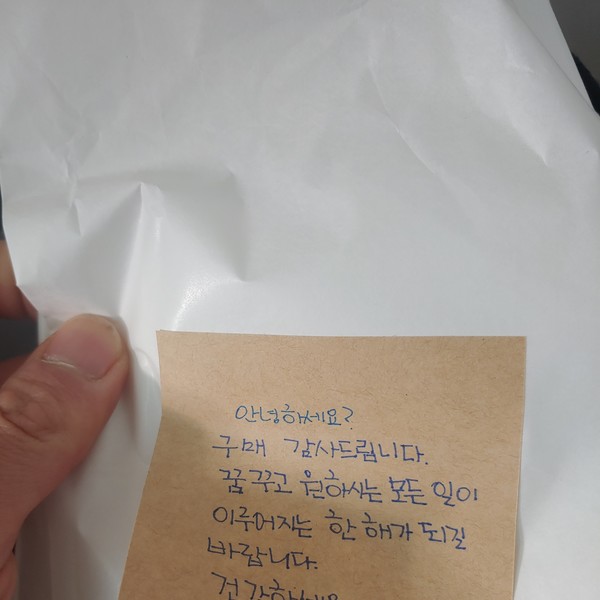 안녕하세요?
구매 감사드립니다.
꿈꾸고 원하시는 모든 일이
이루어지는 한 해가 되길
바랍니다.
건강하세요